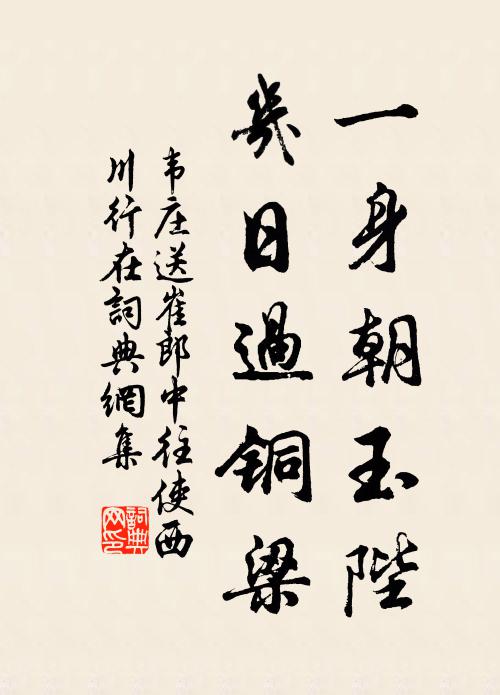 一身朝玉陛
幾日過铜梁
韦庄送崔郎中往使西
川行在詞典網集
詞典网印